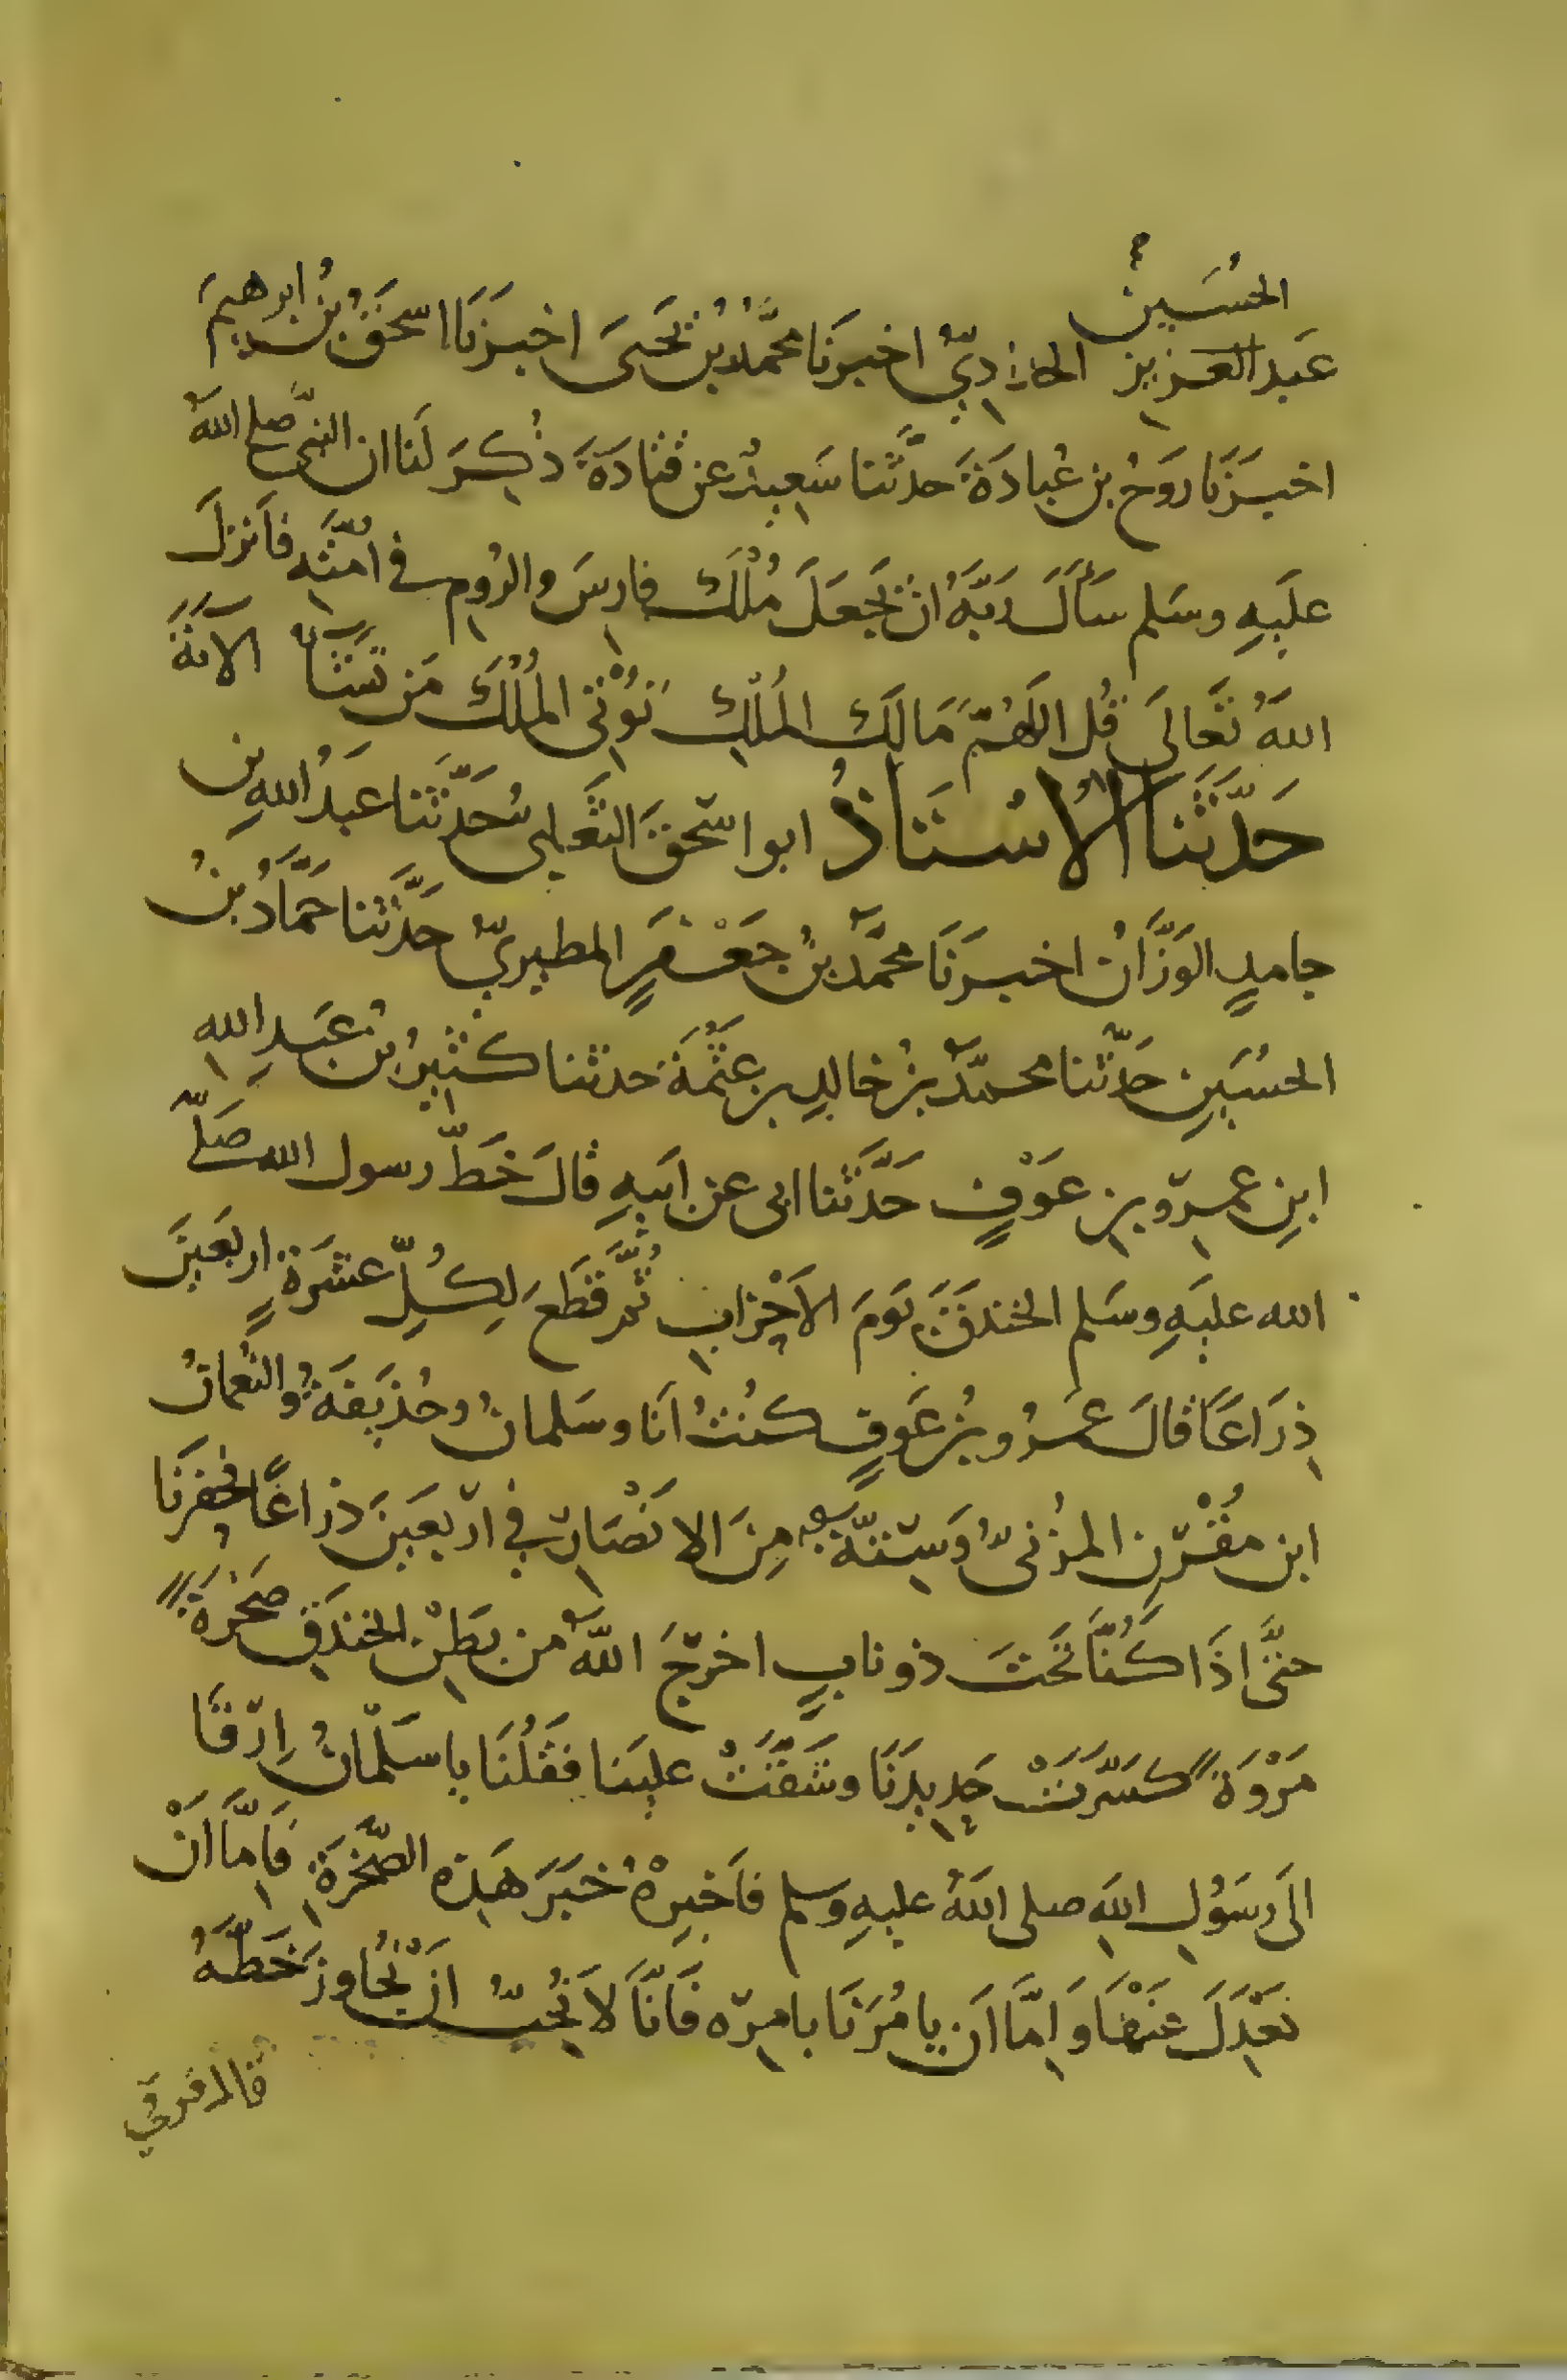 الحُسَين
عَبد العزيز الحادِيّ اخبرنَا محمَّدُ بنُ يَحيىَ اخبرَنَا اسحَقُ بنُ ابرهيمَ
اخبرَنَا رَوحُ بن عُبادَةَ حدَّثنا سَعِيدٌ عن قتادَةَ ذُكِرَ لنَا ان النبىَّ صلى اللهُ
علَيهِ وسَلم سَأَلَ رَبَّهُ انْ يَجعَلَ مُلْكَ فارِسَ والرُومِ فى امّتِه فَاَنزلَ
اللهُ تَعَالَى قُل اللَّهُمَّ مَالِكَ المُلْكِ تُؤْتى المُلْكَ مَن تَشَآءُ الآيَةَ
حَدَّثَنَا الأُسْتَاذُ ابو اسحقَ الثَّعلبى حَدَّثَنا عَبدُ اللهِ بن
حامدٍ الوَزَّانُ اخبرَنَا محمَّدُ بنُ جَعْفَرٍ المطيريّ حَدَّثَنا حَمَّادُ بنُ
الحسَينِ حَدّثنا محمدُ بنُ خالدِ بن عَثْمَةَ حدثنا كثيرُ بنُ عَبدِ اللهِ
ابنِ عمرو بن عَوْفٍ حَدَّثَنا ابى عن ابيهِ قالَ خَطَّ رسول الله صَلّى
الله عليهِ وسَلم الخندَقَ يَومَ الأَحْزابِ ثُمَّ قَطَعَ لِكُلِّ عشَرَةٍ اربَعينَ
ذِرَاعًا قالَ عَمرُو بنُ عَوفٍ كنُتُ اَنَا وسَلمانُ وحُذَيفَةُ والنُعمانُ
ابن مقْرّنِ المزُنىُّ وَسِتّةٌ مِنَ الانْصَارِ فى اربَعينَ ذراعًا فحفرنَا
حتَّى اذَا كُنَّا تَحَتَ ذو نابٍ اخرجَ اللّهُ من بَطِنْ الخندَقِ صَخْرَةً
مَرْوَةً كسَرَتْ حَدِيدَنَا وشَقَّتْ عليَنا فقَلُنَا يا سَلْمانُ اِرْقَا
الىَ رسَوُلِ اللهِ صلى اللهُ عليهِ وسلم فاَخبِرهْ خبَرَ هَذِه الصَّخرَةِ فَاِمَّا اَنْ
نَعْدِلَ عَنهْا وَاِمَّا اَن يامُرَنَا بامِره فَانَّا لاَ نُحِبُّ اَنْ نُجَاوزَ خَطَّهُ
قال فرقى